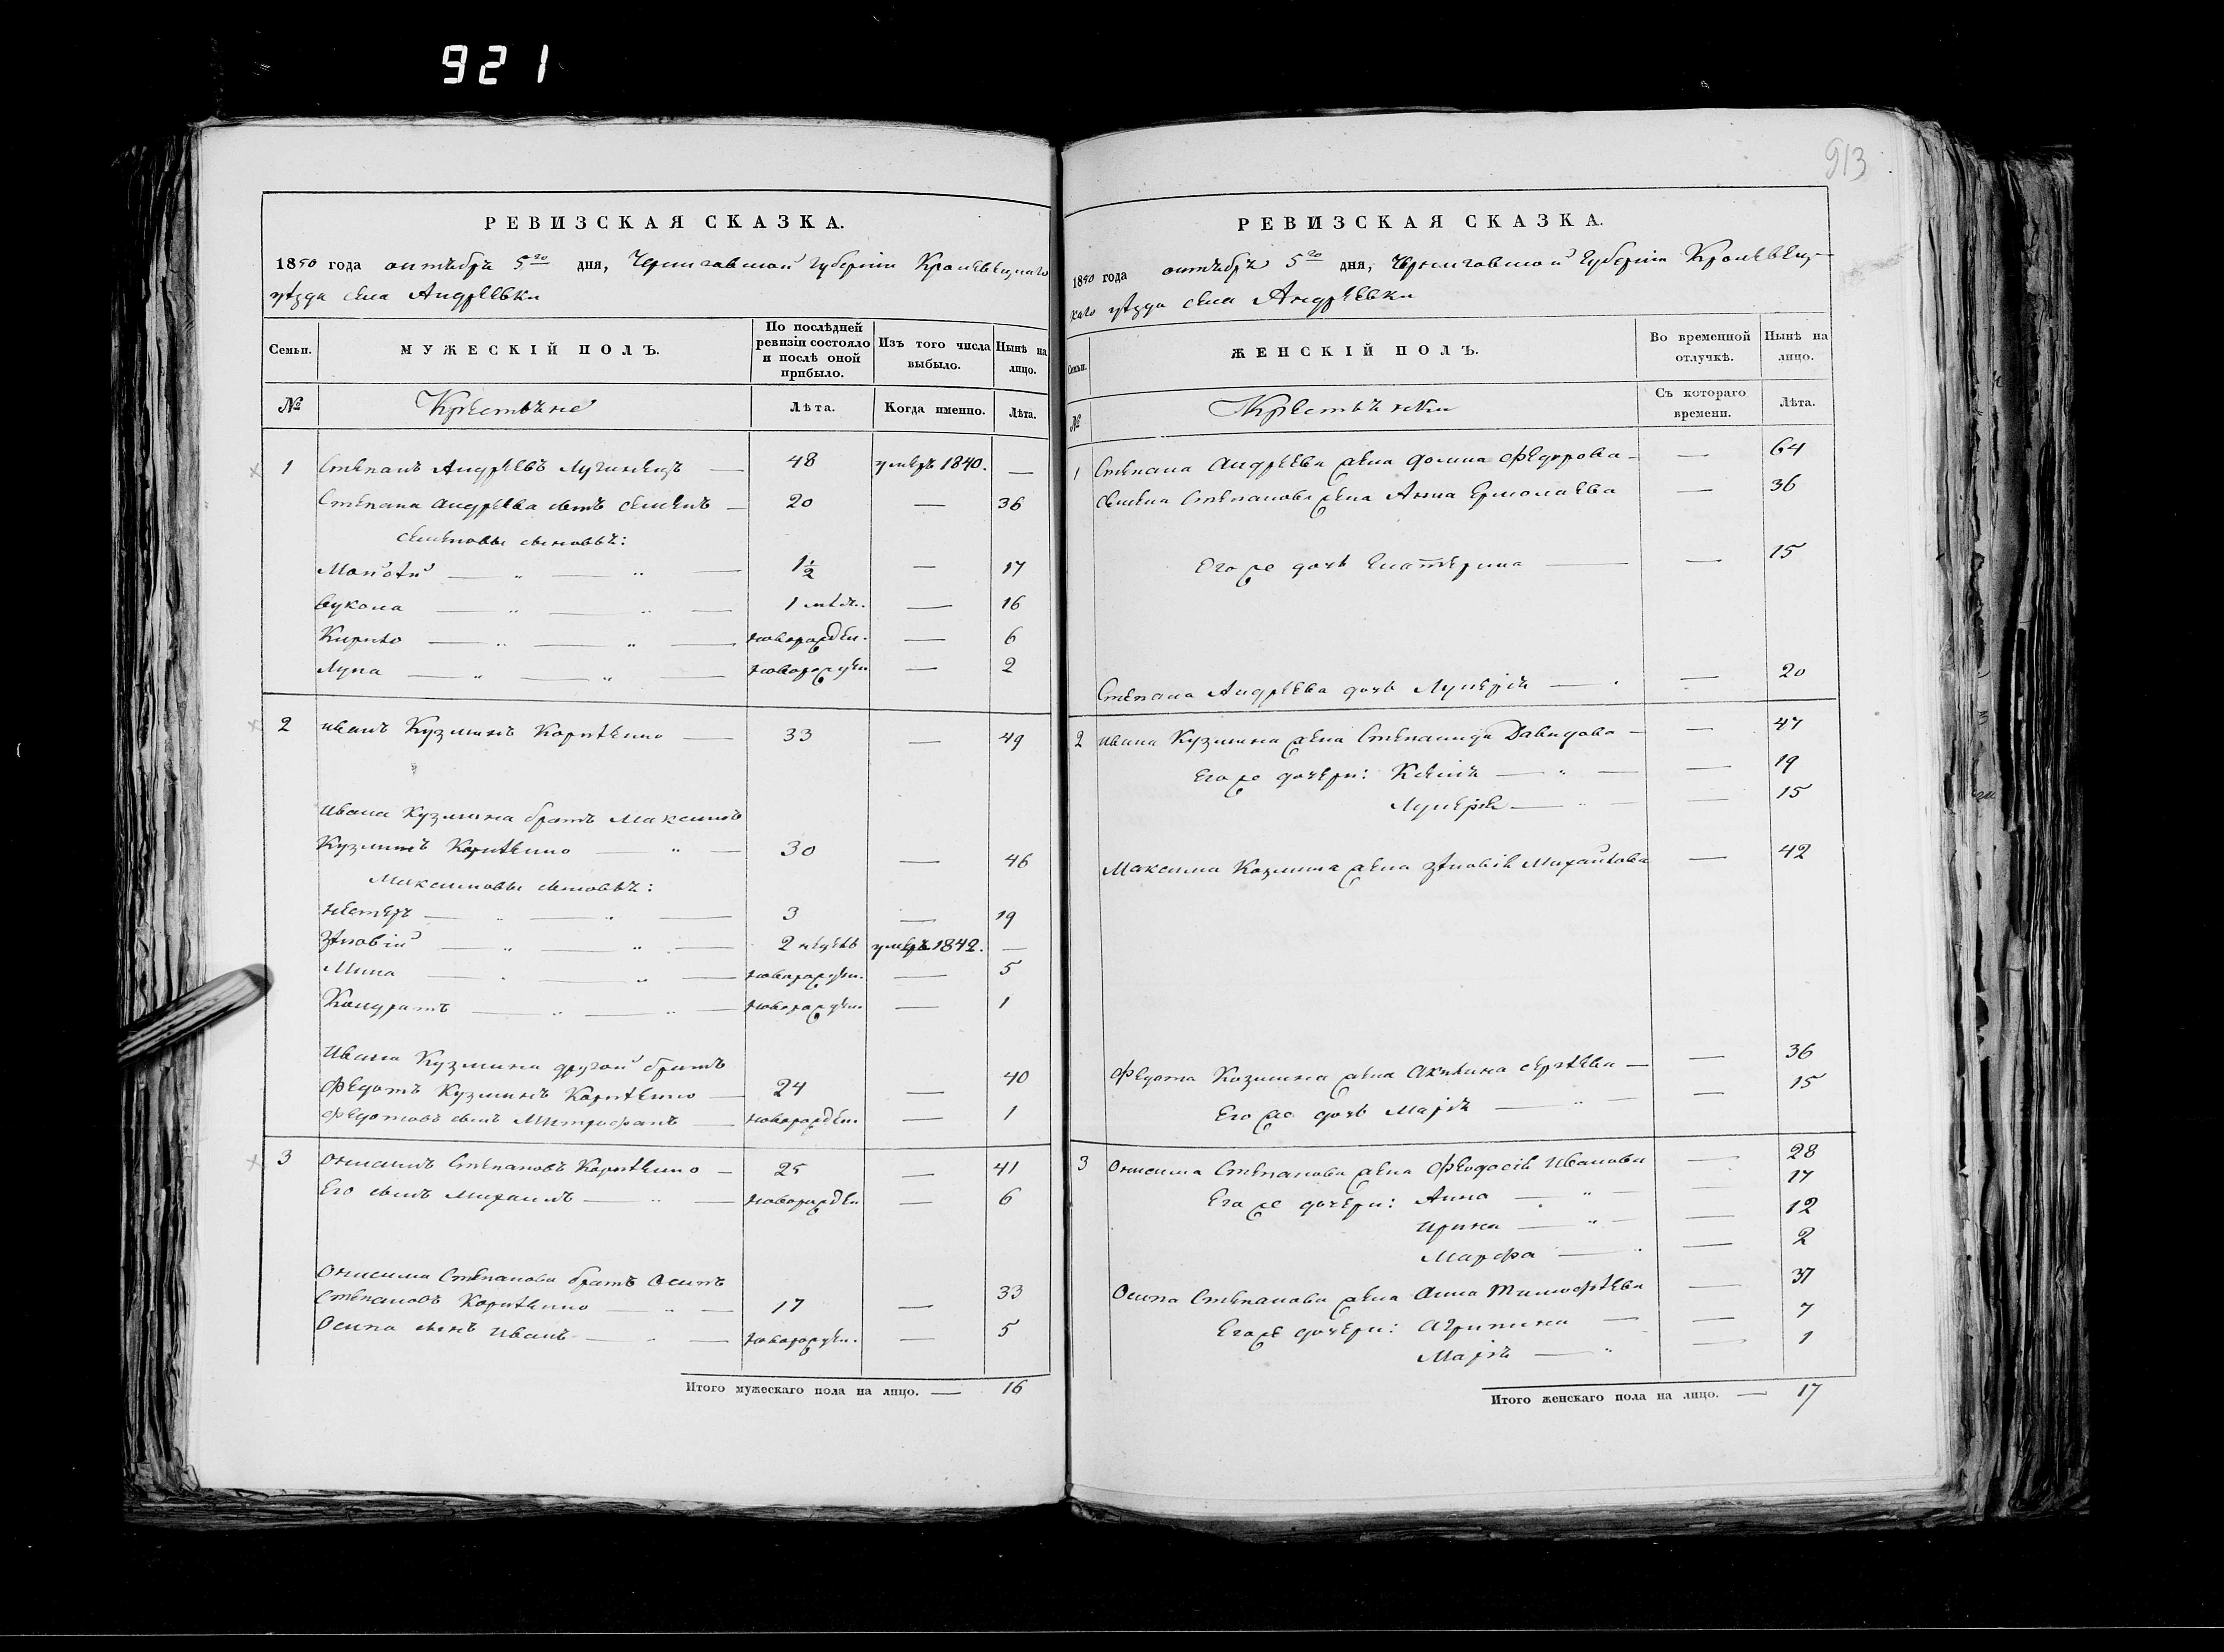 921
913
РЕВИЗСКАЯ СКАЗКА.
1850 года октября 5го дня, Черниговской губернии Кролевецкаго
уѣзда села Андреевки
Семьи. МУЖЕСКІЙ ПОЛЪ. По послѣдней ревизіи состояло и послѣ оной прибыло. Изъ того числа выбыло. Нынѣ на лицо.
№ Крестьяне Лѣта. Когда именно. Лѣта.
1 Степанъ Андреевъ 48 умеръ 1840. —
Степана Андреева сынъ Семенъ — 20 — 36
Семеновы сыновья:
1½ — 17
Вукола — " — " — 1 мѣся. — 16
Кирило — " — " — новорожден. — 6
Лупа — " — " — новорожден — 2
2 Иванъ Кузминъ — 33 — 49
Ивана Кузмина братъ Максимъ
Кузминъ — " — 30 — 46
Максимовы сыновья:
Нестеръ — " — " — 3 — 19
Зѣновій — " — " — 2 недель умеръ 1842. —
Мина — " — " — новорожден. — 5
Кондратъ — " — " — новорожден. — 1
Ивана Кузмина другой братъ
Федотъ Кузминъ — 24 — 40
Федотовъ сынъ Митрофанъ — новорожден. — 1
3 Онисимъ Степановъ — 25 — 41
Его сынъ Михаилъ — " — новорожден — 6
Онисима Степанова братъ Осипъ
Степановъ — " — 17 — 33
Осипа сынъ Иванъ — " — новорожден. — 5
Итого мужескаго пола на лицо. — 16
РЕВИЗСКАЯ СКАЗКА.
1850 года октября 5го дня, Черниговской Губерніи Кролевец-
каго уѣзда села Андреевки
Семьи. ЖЕНСКІЙ ПОЛЪ. Во временной отлучкѣ. Нынѣ на лицо.
№ Крестьянки Съ котораго времени. Лѣта.
1 Степана Андреева жена Домна Федорова — — 64
Семена Степанова жена Анна Ермолаева — 36
Его же дочь Екатерина — — 15
Степана Андреева дочь Лукерія — — 20
2 Ивана Кузмина жена Степанида Давидова — — 47
Его же дочери: Ксенія — " — — 19
Лукерія — " — — 15
Максима Козмина жена Зѣновія Михайлова — 42
Федота Козмина жена Акилина Сергѣева — — 36
Его же дочь Марія — " — — 15
3 Онисима Степанова жена Феодосія Иванова — 28
Его же дочери: Анна — " — — 17
Ирина — " — — 12
Марфа — " — 2
Осипа Степанова жена Анна Тимофѣева — 37
Его же дочери: Агрипина — — 7
Марія — " — 1
Итого женскаго пола на лицо. — 17